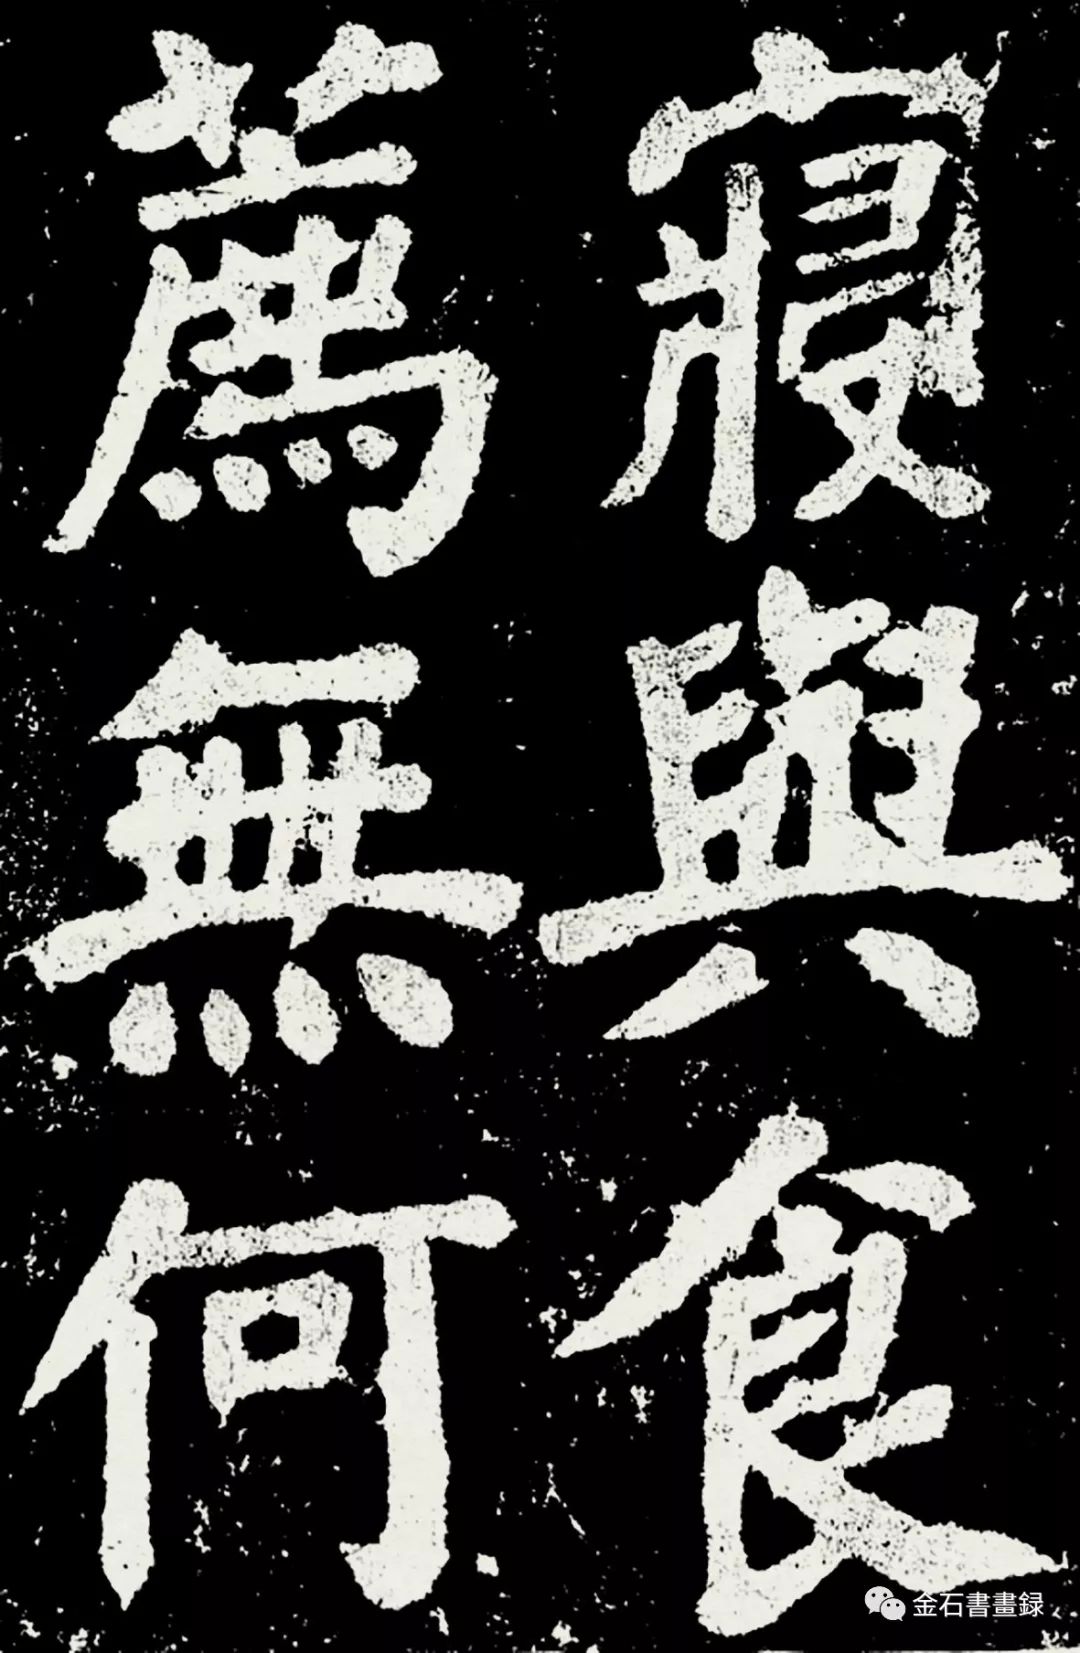 寢與食
薦無何
金石書畫録